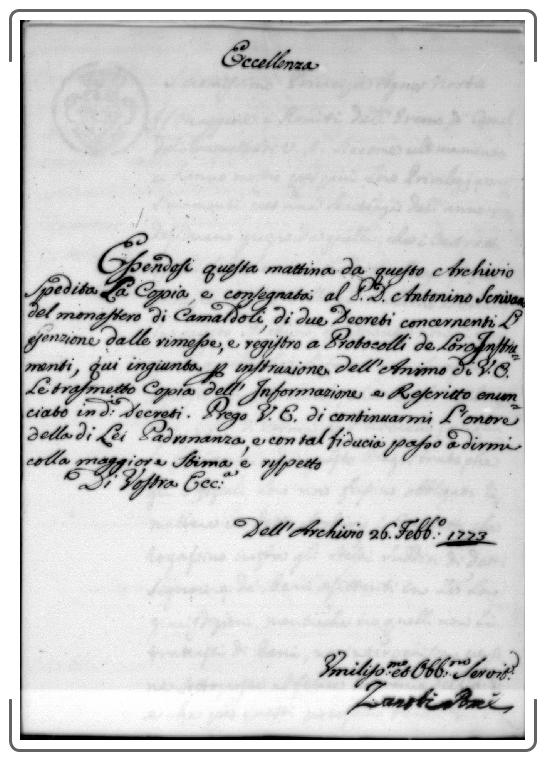 Eccellenza
Essendosi questa mattina da questo Archivio
spedita La Copia, e consegnata al P. D. Antonino Scrivan
del monastero di Camaldoli, di due Decreti concernenti L'
Esenzione dalle rimesse, e registro a Protocolli de Loro Instru=
menti, qui ingiunta p instruzione dell'Animo di V. E.
Le trasmetto Copia dell'Informazione e Rescritto enun=
ciato in d:i Decreti. Prego V. E. di continuarmi L'onore
della di Lei Padronanza, e con tal fiducia passo a dirmi
colla maggiore stima, e rispetto
Di Vostra Ecc:a
Dell'Archivio 26. Febb:o 1773
Umiliss:mo ed Obb:mo Servit: